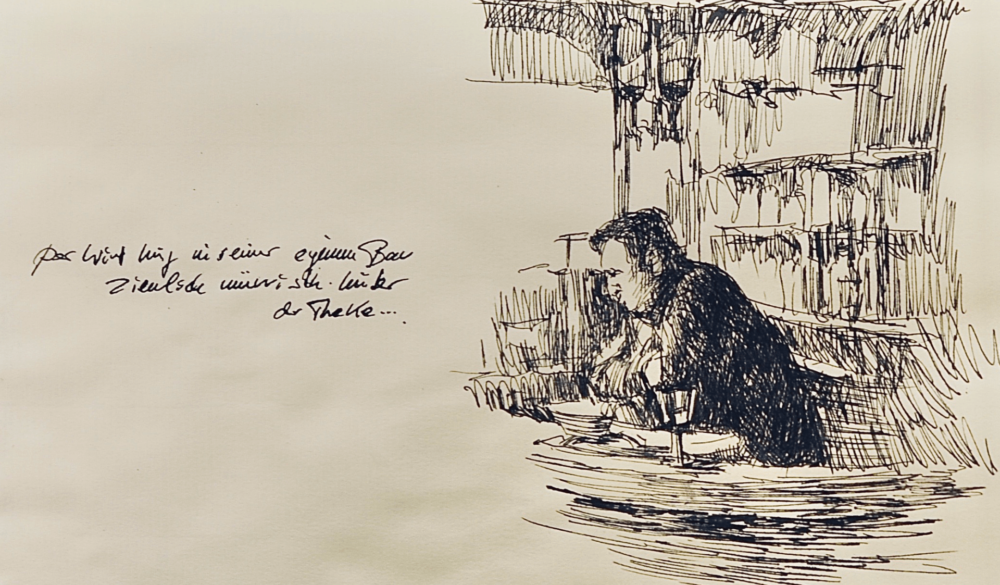 Der Wirt hing in seiner eigenen Bar
ziemlich mürrisch hinter
der Theke...